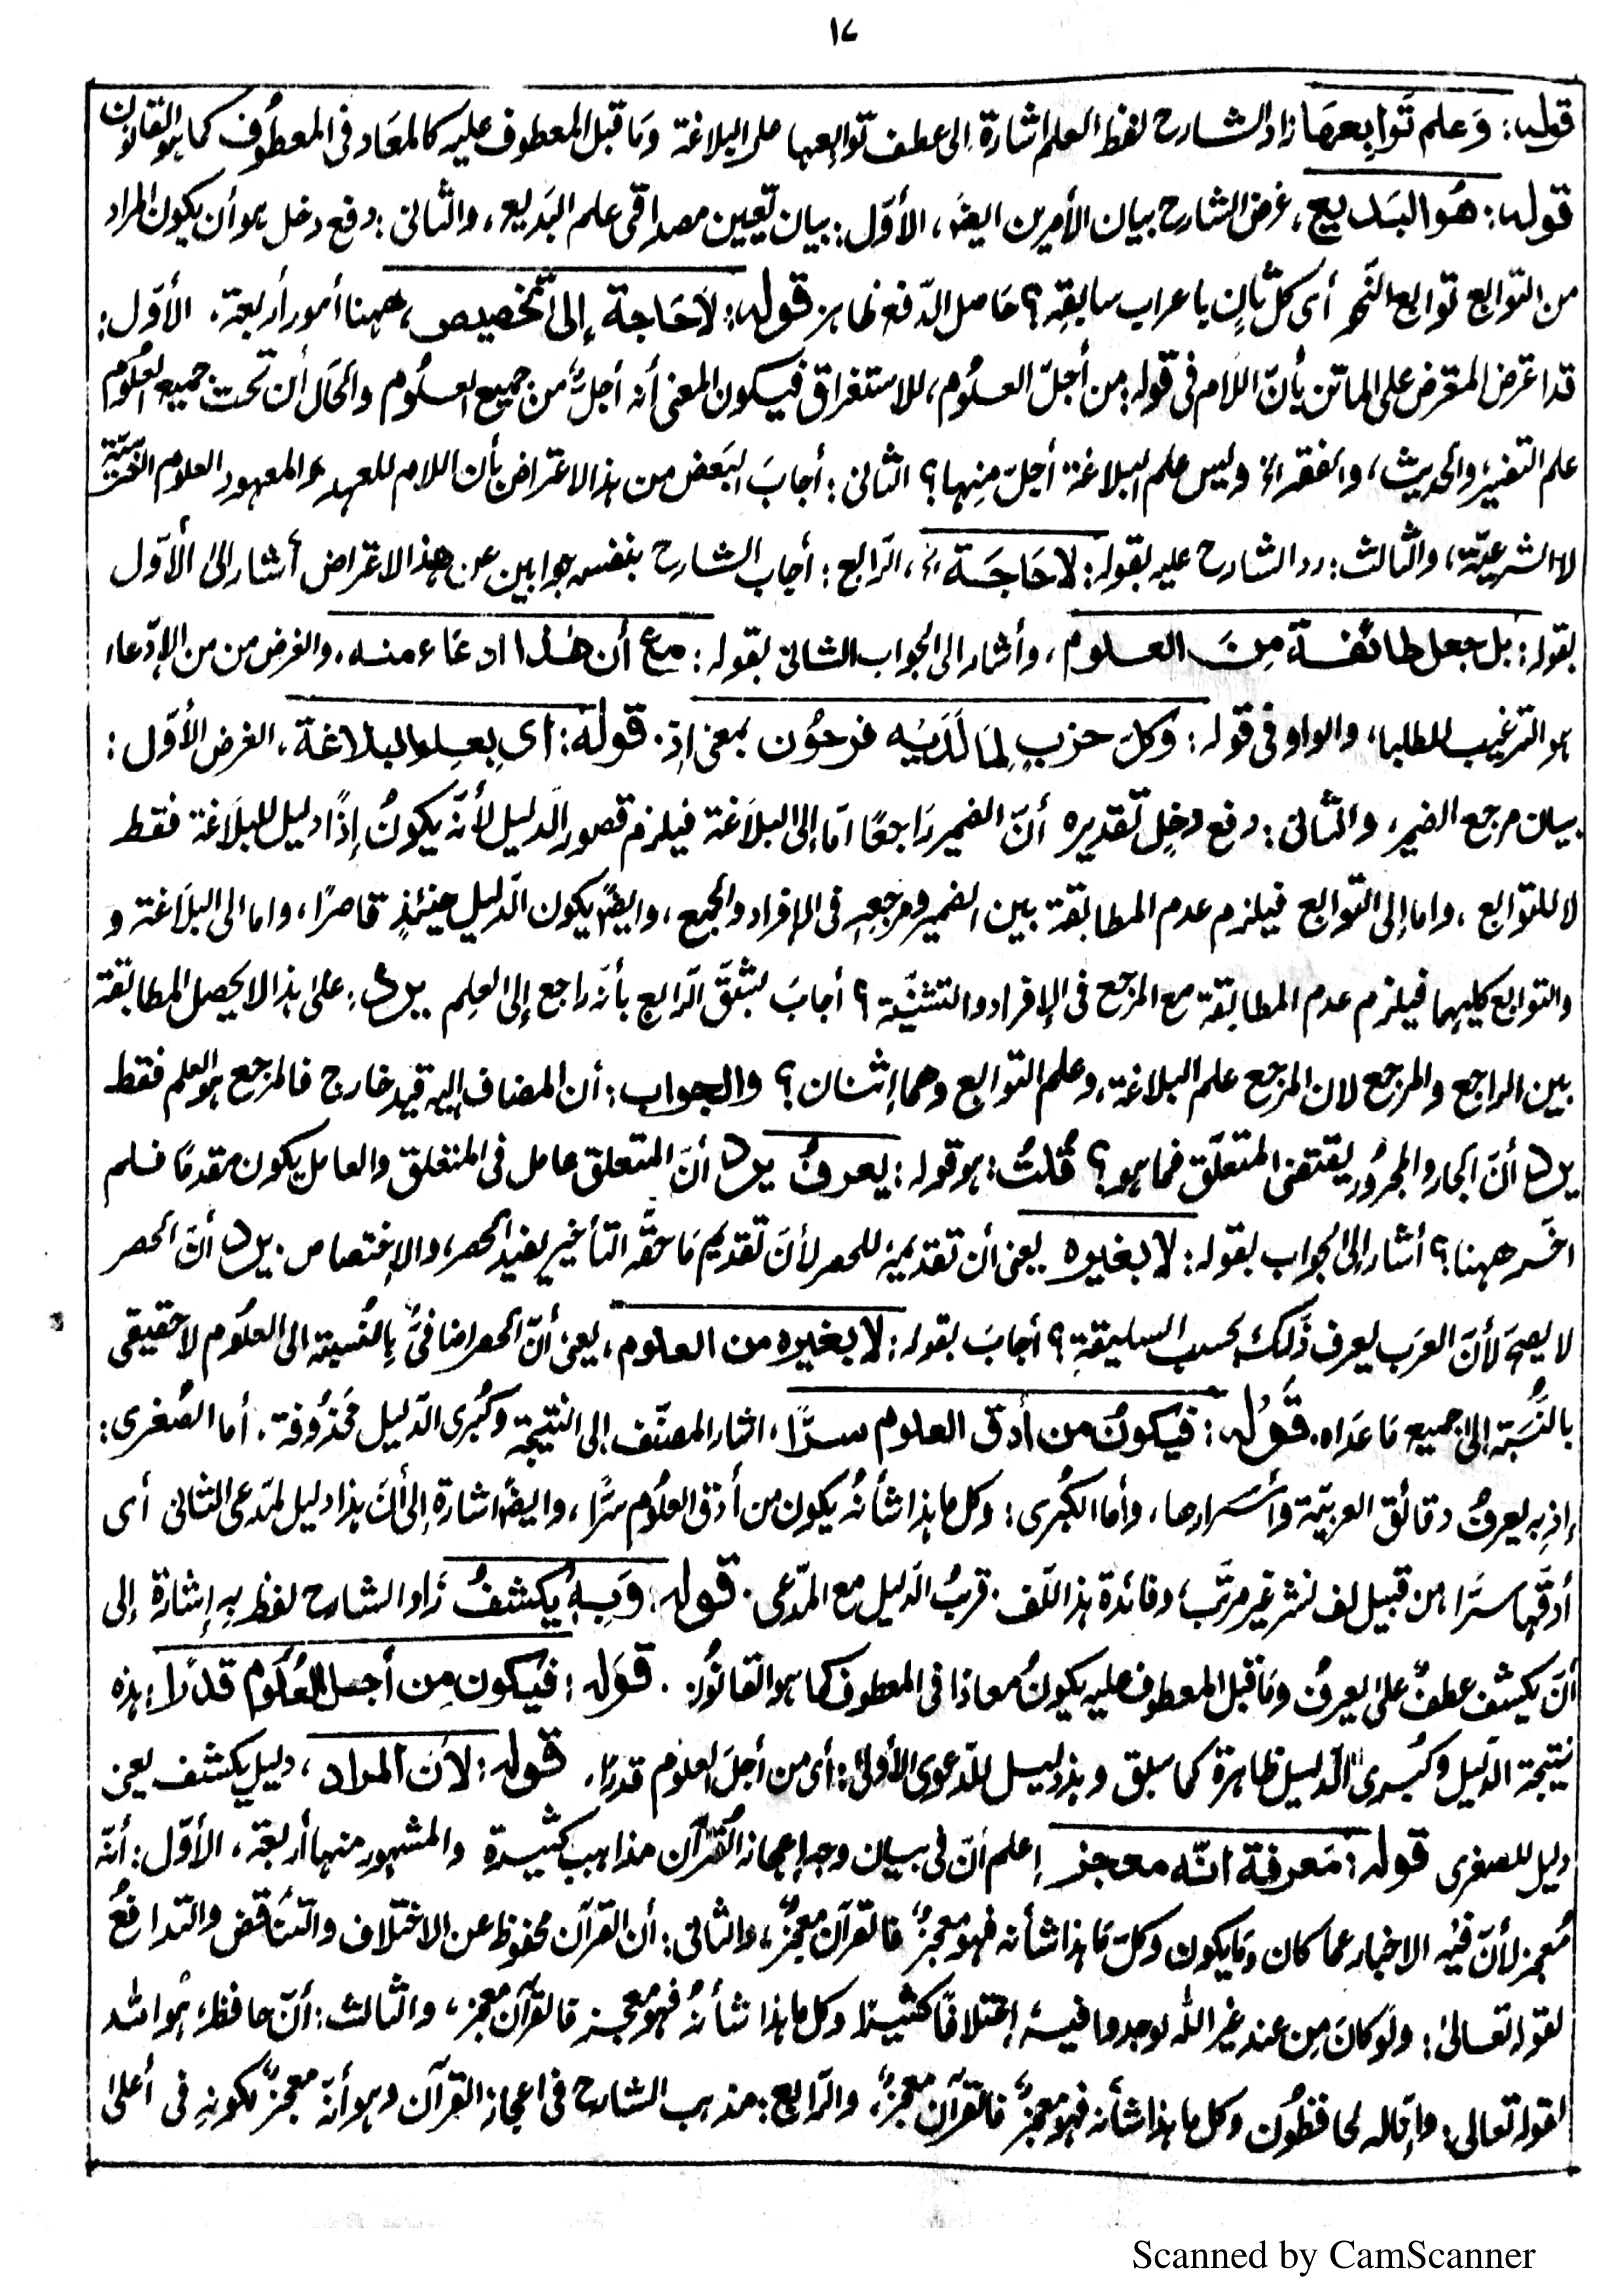 ١٧
قوله: وَعلم تَوابِعهَا زاد الشارح لفظ العلم اشارة الى عطف توابعها على البلاغة وما قبل المعطوف عليه كالمعاد فى المعطوف كما هو القانون
قوله: هُوَ البَديع، غرض الشارح بيان الأمرين ايضًا، الأوّل: بيان تعيين مصداق علم البَديع، والثانى: دفع دخل هو أن يكون المراد
من التوابع توابع النَّحو أى كل ثانٍ باعراب سابقه؟ حَاصل الدّفع ظاهر قوله: لَاحَاجة إلى تخصيص، ههنا أمور أربعة، الأوّل:
قد اعترض المعترض على الماتن بأنّ اللام فى قوله: من أجلّ العلُوم، للاستغراق فيكون المعنى أنه أجلّ من جميع العلُوم والحَال أن تحت جميع العلُوم
علم التفسير والحديث، والفقه الخ وليس علم البلاغة أجلّ منها؟ الثانى: أجابَ البَعض من هذا الاعتراض بأن اللام للعهد والمعهود العلوم العربيّة
لا الشرعيّة، والثالث: رد الشارح عليه بقوله: لا حَاجَة الخ، الرّابع: أجاب الشارح بنفسه جوابين عن هذا الاعتراض أشار إلى الأوّل
بقوله: بل جعل طائفة مِنَ العلوم، وأشار الى الجواب الثانى بقوله: مع أن هٰذا ادعَاء منه، والغرض من من الإدّعاء
هو الترغيب للطلباء، والواو فى قوله: وَكل حزبٍ لِمَا لَدَيه فرحُون بمعنى إذ. قوله: أى بِعلم البلاغة، الغرض الأوّل:
بيان مرجع الضمير، والثانى: دفع دخلٍ تقديره أنّ الضمير رَاجعًا امّا إلى البلاَغة فيلزم قصور الدليل لأنّه يكونُ إذًا دليل للبلَاغة فقط
لا للتوابع، واما إلى التوابع فيلزم عدم المطابقة بين الضمير ومرجعه فى الإفراد والجمع، وايضًا يكون الدّليل حينئذٍ قاصرًا، واما الى البلَاغة و
والتوابع كليهما فيلزم عدم المطابقة مع المرجع فى الإفراد والتثنيّة؟ أجابَ بشقّ الرّابع بأنّه راجع إلى العِلم يرد: على هذا لا يحصل المطابقة
بين الراجع والمرجع لان المرجع علم البلاغة، وعلم التوابع وهما إثنان؟ والجواب: أن المضاف إليه قيد خارج فالمرجع هو العلم فقط
يرد أنّ الجار والمجرُور يقتضى المتعلّق فما هو؟ قُلتُ: هو قوله: يعرفُ يرد أنّ المتعلق عامل فى المتعلق والعامل يكون مقدمًا فلم
اخَّر ههنا؟ أشار إلى الجواب بقوله: لا بغيره يعنى أن تقديمه للحصر لأن تقديم مَا حقّه التأخير يفيد الحصر، والإختصاص. يرد أنّ الحصر
لا يصح لأنّ العرَب يعرف ذَلك بحسب السليقةِ؟ أجابَ بقوله: لا بغيره من العلوم، يعنى أنّ الحصر اضافىٌّ بالنسبة الى العلُوم لا حقيقى
بالنّسبة إلى جميع مَا عدَاه. قَوُله: فيكونُ من أدق العلوم سرًّا، اشار المصنّف إلى النتيجة وكُبرى الدّليل محذُوفة. أما الصُغرى:
إذ به يعرفُ دقائق العربيّة وأسْرارها، وأما الكُبرى: وكل ما هذا شأنُه يكون من أدقّ العلُوم سرًّا، وايضًا اشارة إلى أنّ هذا دليل لمدّعى الثانى أى
أدقّها سرًّا، من قبيل لف نشر غير مرتّب، وفائدة هذا اللّف، قربُ الدّليل مع المدّعى. قوله: وَبِه يُكشفُ زَاد الشارح لفظ به إشارة إلى
أنّ يكشف عطفٌ على يعرفُ ومَا قبل المعطوف عليه يكونُ معادًا فى المعطوف كما هو القانُون. قوَله: فيُكون مِن أجل العُلُوم قدرًا: هذه
نتيجة الدّليل وكُبرى الدّليل ظاهرة كما سبق وهذا دليل للدّعوى الأولى: أى من أجلّ العلُوم قدرًا. قوله: لأن المراد، دليل يكشف يعنى
دليل للصغرى قوله: مَعرفة انّه معجز إعلم أنّ فى بيان وجه إعجاز القُرآن مذاهب كثيرة والمشهور منها أربعة، الأوّل: أنّه
مُعجز لأنّ فيه الاخبار عما كان ومَا يكون وكلّ مَا هذا شأنه فهو معجزٌ فالقرآن معجزٌ، والثانى: أن القرآن محفوظ عن الاختلاف والتنَاقض والتدافعُ
لقوله تعالىٰ: ولَو كانَ مِن عند غير الله لوجدوا فيه إختلافًا كثيرًا وكل ما هذا شأنُه فهو معجز فالقرآن معجز، والثالث: أنّ حافظهُ هُو الله
لقوله تعالى: وإنّا له لحافظُون وكل ما هذا شأنه فهو معجزٌ فالقرآن معجزٌ، والرّابع: مذهب الشارح فى اعجاز القرآن وهو أنّه معجزٌ لكونهِ فى أعلىٰ
Scanned by CamScanner